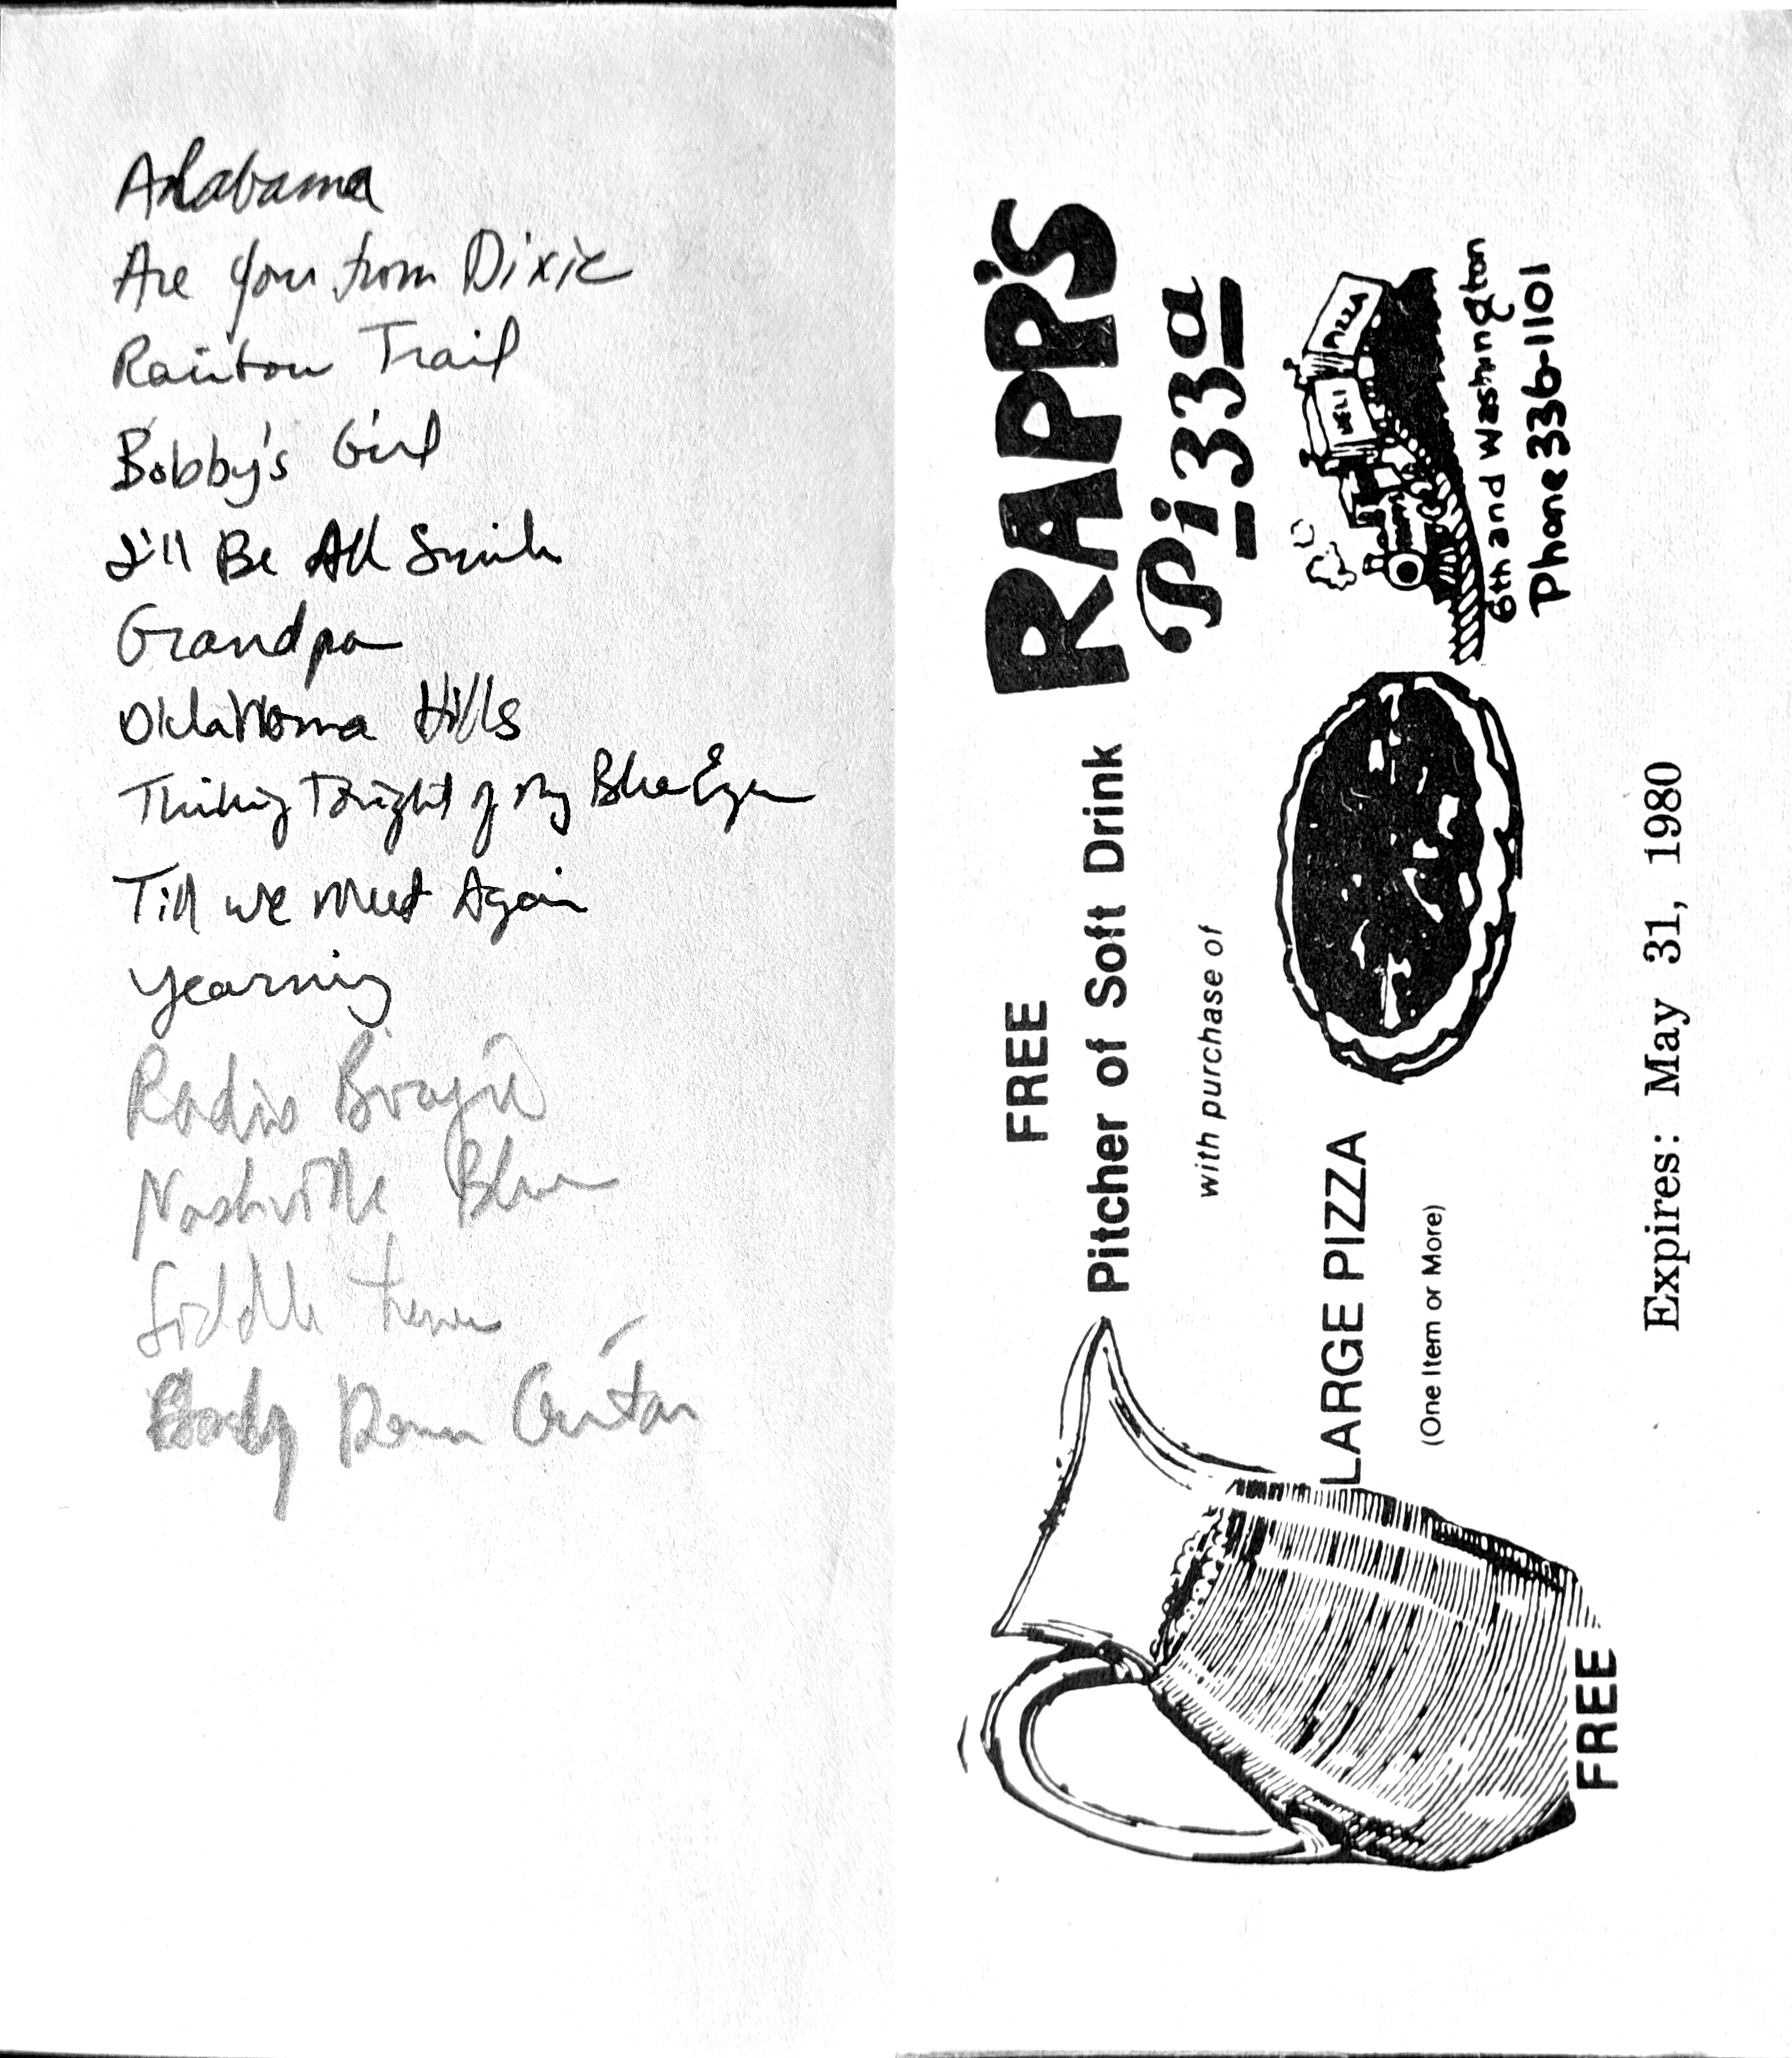 Alabama
Are you from Dixie
Rainbow Trail
Bobby's Girl
I'll Be All Smiles
Grandpa
Oklahoma Hills
Thinking Tonight of My Blue Eyes
Till we Meet Again
Yearning
Radio Boogie
Nashville Blues
fiddle tune
Down Guitar
RAPP'S
Pizza
DELI
PIZZA
6th and Washington
Phone 336-1101
FREE
Pitcher of Soft Drink
with purchase of
LARGE PIZZA
(One Item or More)
FREE
Expires: May 31, 1980